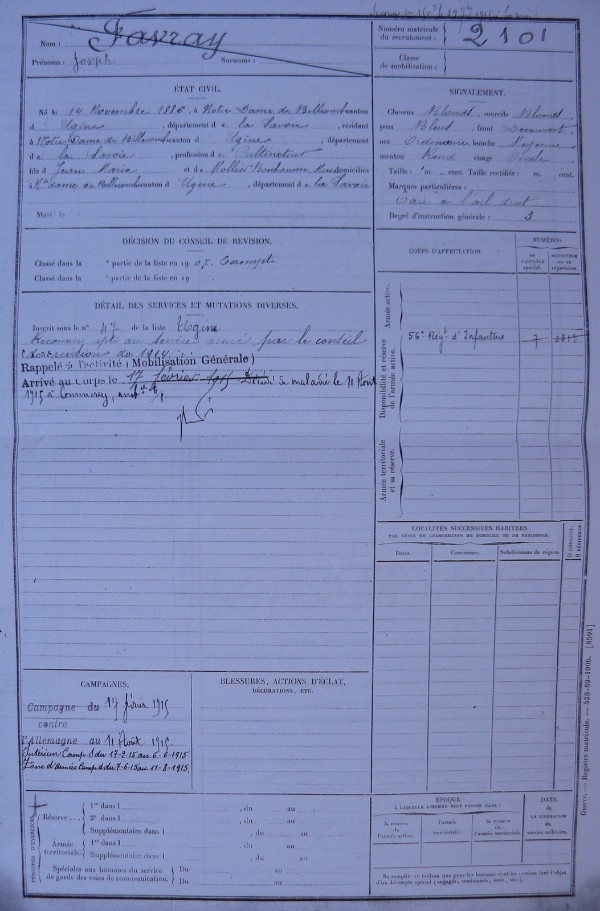 Nom :
Favray
Prénoms :
Joseph
Surnoms :
Numéro matricule
du recrutement :
2101
Classe
de mobilisation :
ÉTAT CIVIL.
Né le 14 Novembre 1886, à Notre Dame de Bellecombe canton
d Ugine, département d e la Savoie, résidant
à Notre Dame de Bellecombe canton d Ugine, département
d e la Savoie, profession d Cultivateur
fils d Jean Marie et d domiciliés
à canton d Ugine, département d e la Savoie
Marié le
SIGNALEMENT.
Cheveux Blonds, sourcils Blonds
yeux Bleus, front Découvert
nez Ordinaire, bouche Moyenne
menton Rond visage Ovale
Taille : m. cent. Taille rectifiée : m. cent.
Marques particulières :
Taie à l'œil droit
Degré d'instruction générale : 3
DÉCISION DU CONSEIL DE REVISION.
Classé dans la e partie de la liste en 19 07. Exempté
Classé dans la e partie de la liste en 19
CORPS D'AFFECTATION.
NUMÉROS
au contrôle spécial.
matricule ou au répertoire.
Armée active.
Disponibilité et réserve de l'armée active.
56e Régt d'Infanterie
7
Armée territoriale et sa réserve.
DÉTAIL DES SERVICES ET MUTATIONS DIVERSES.
Inscrit sous le n° 47 de la liste Ugine
Reconnu apte au service armé par le conseil
de revision de 1914
Rappelé à l'activité (Mobilisation Générale)
Arrivé au Corps le 17 février 1915 Décédé de maladie le 11 Août
1915 à Commercy,
LOCALITÉS SUCCESSIVES HABITÉES
PAR SUITE DE CHANGEMENTS DE DOMICILE OU DE RÉSIDENCE.
Dates.
Communes.
Subdivisions de région.
D DOMICILE.
R RÉSIDENCE.
CAMPAGNES.
Campagne du 17 février 1915
contre
l'Allemagne au 11 Août 1915
Intérieur Camp. S du 17-2-15 au 6-6-1915
Zone d'Armées Camp. D du 7-6-15 au 11-8-1915.
BLESSURES, ACTIONS D'ÉCLAT,
DÉCORATIONS, ETC.
PÉRIODES D'EXERCICES
Réserve
1re dans l , du au
2e dans l , du au
Supplémentaire dans l , du au
Armée territoriale.
1re dans l , du au
Supplémentaire dans l , du au
Spéciales aux hommes du service
de garde des voies de communication.
Du au
Du au
ÉPOQUE
À LAQUELLE L'HOMME DOIT PASSER DANS :
la réserve de l'armée active.
l'armée territoriale.
la réserve de l'armée territoriale.
DATE
de
LA LIBÉRATION
du
service militaire.
Guerre. — Registre matricule. — 428-89-1906. [8591]